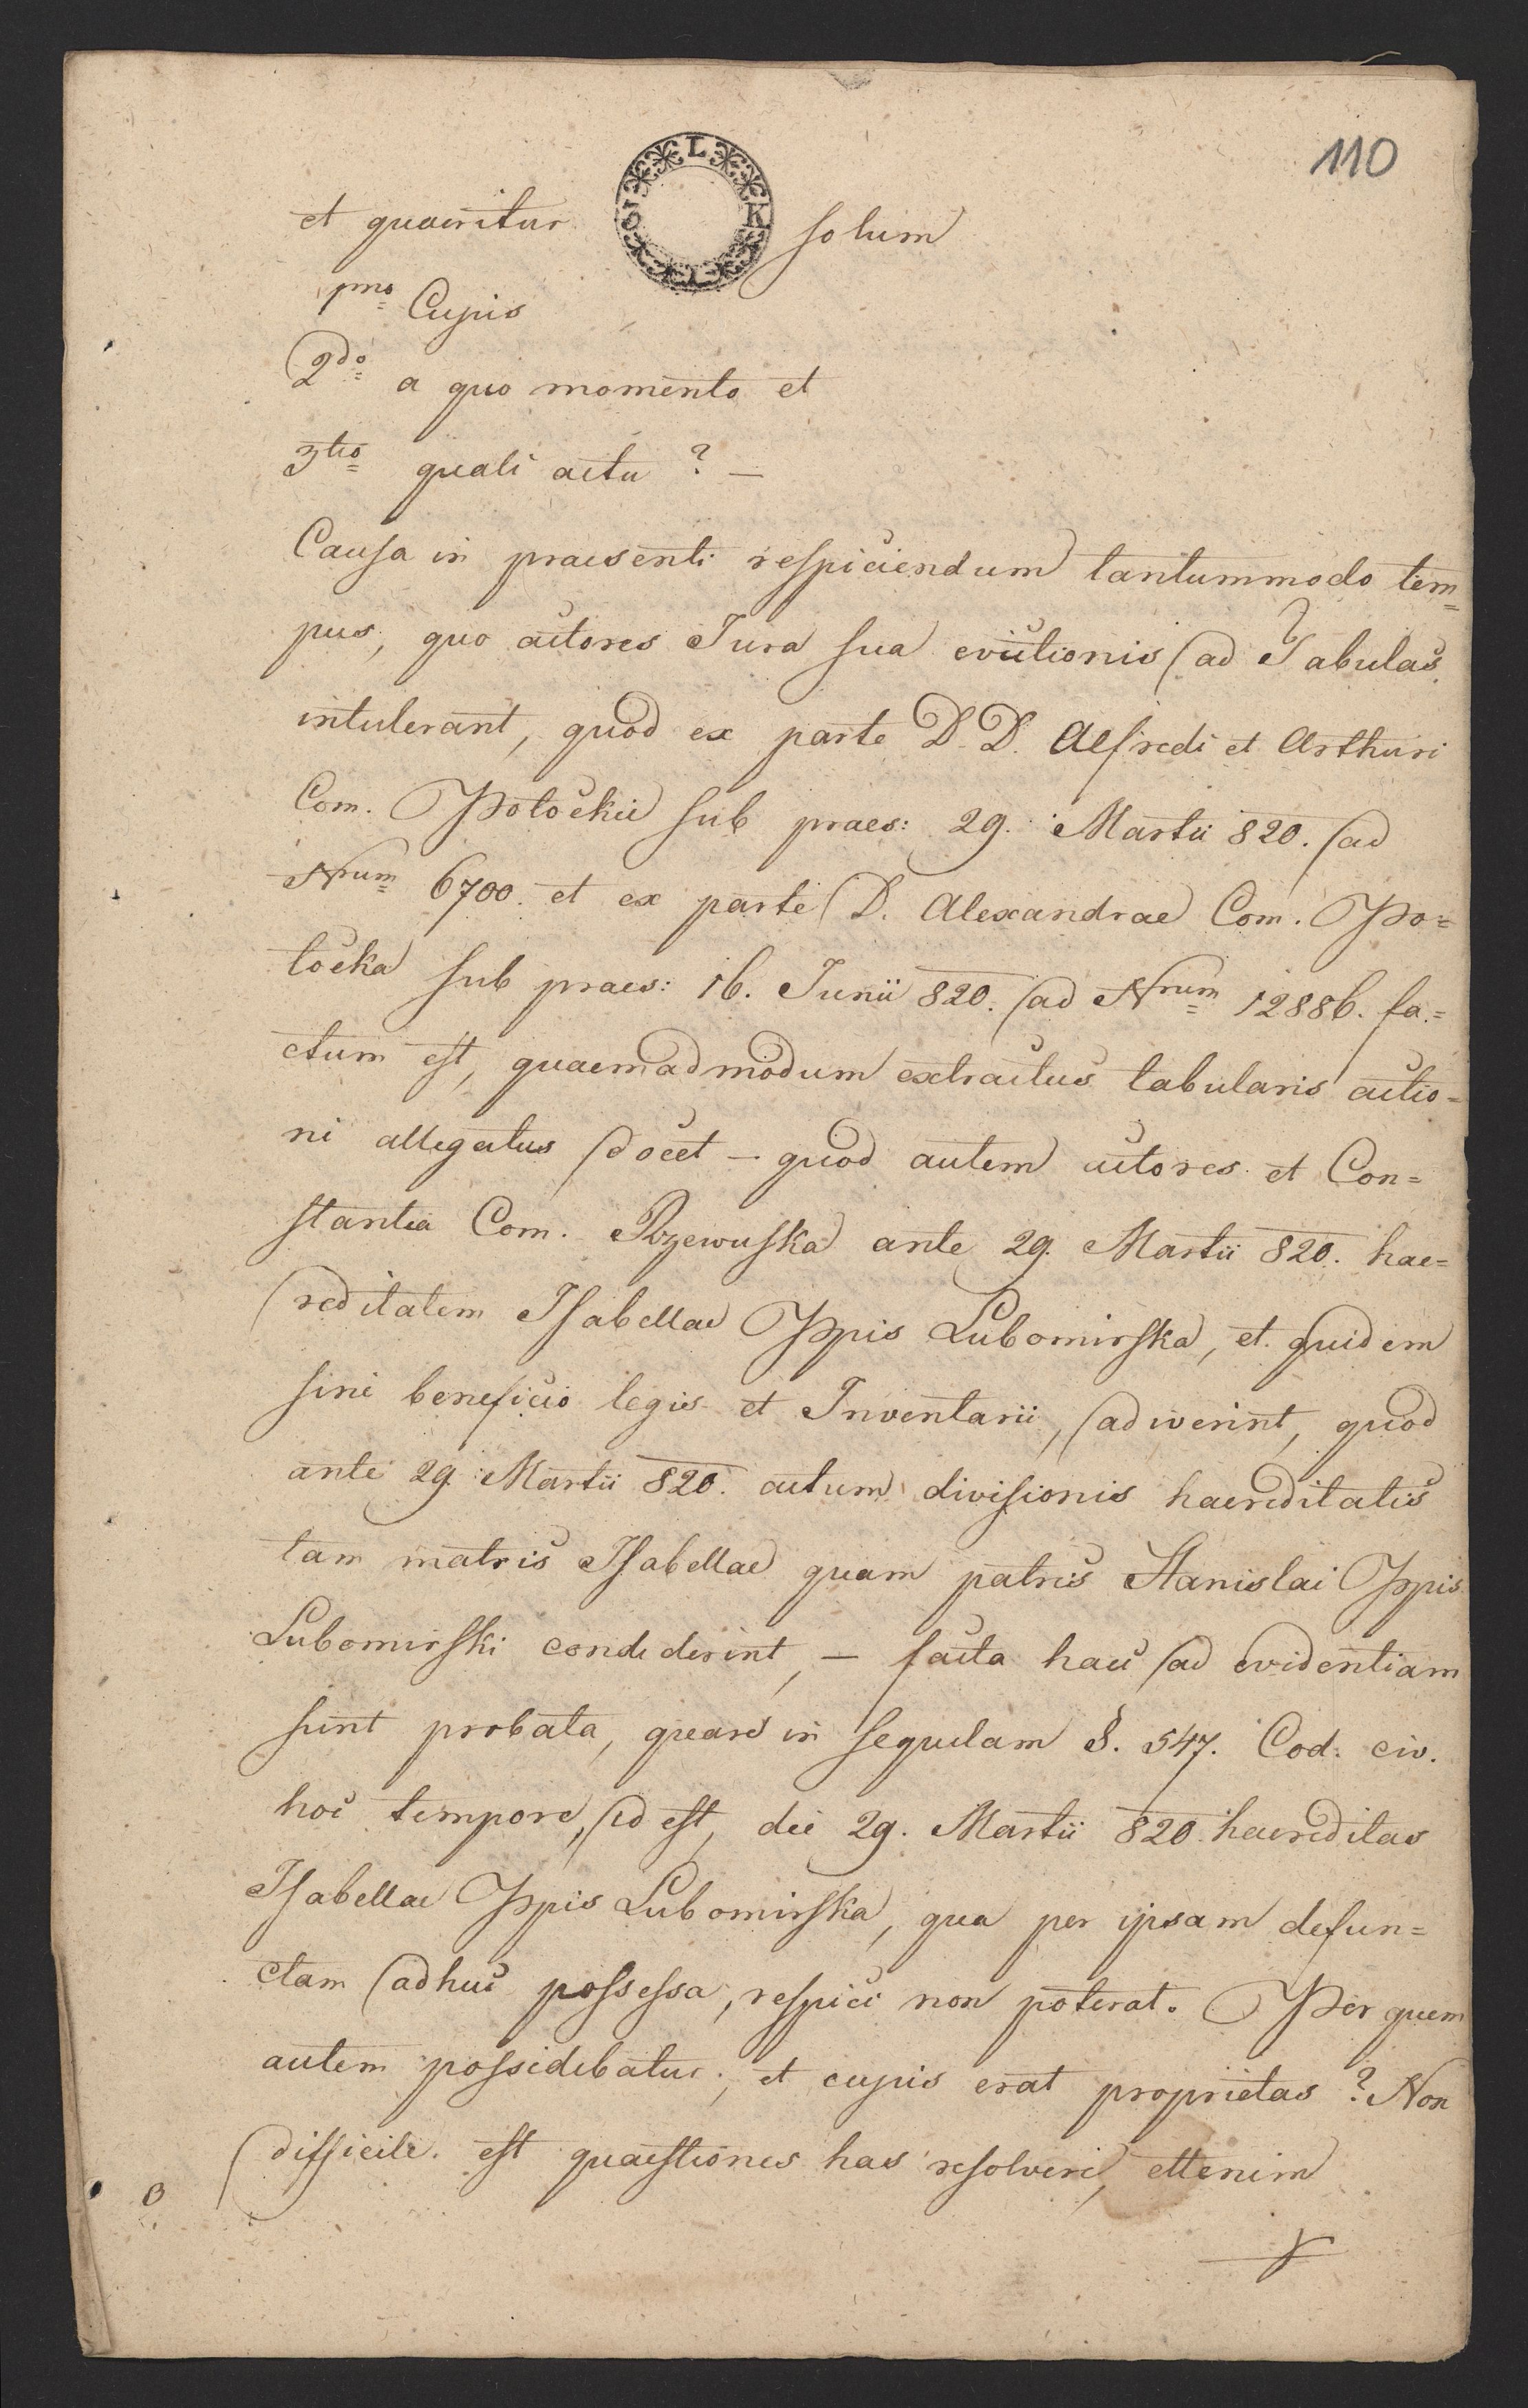 110
et quaeritur solum
1mo Cujus
2do a quo momento et
3tio quali actu ? —
Causa in praesenti respiciendum tantummodo tem=
pus, quo actores Jura sua evictionis ad Tabulas
intulerant, quod ex parte D. D. Alfredi et Arthuri
Com. Potockie sub praes: 29. Martii 820. ad
Nrum 6700. et ex parte D. Alexandrae Com. Po=
tocka sub praes: 16. Junii 820. ad Nrum 12886. fa=
ctum est, quaemadmodum extractus tabularis actio=
ni allegatus docet — quod autem actores et Con=
stantia Com. Rzewuska ante 29. Martii 820. hae=
reditatem Isabellae Ppis Lubomirska, et quidem
sine beneficio legis et Inventarii, adiverint, quod
ante 29. Martii 820. actum divisionis haereditatis
tam matris Isabellae quam patris Stanislai Ppis
Lubomirski condiderint, — facta haec ad evidentiam
sunt probata, quare in sequelam §. 547. Cod. civ.
hoc tempore, id est, die 29. Martii 820. haereditas
Isabellae Ppis Lubomirska, qua per ipsam defun=
ctam adhuc possessa, respici non poterat. Per quem
autem possidebatur, et cujus erat proprietas ? Non
difficile est quaestiones has resolvere, ettenim